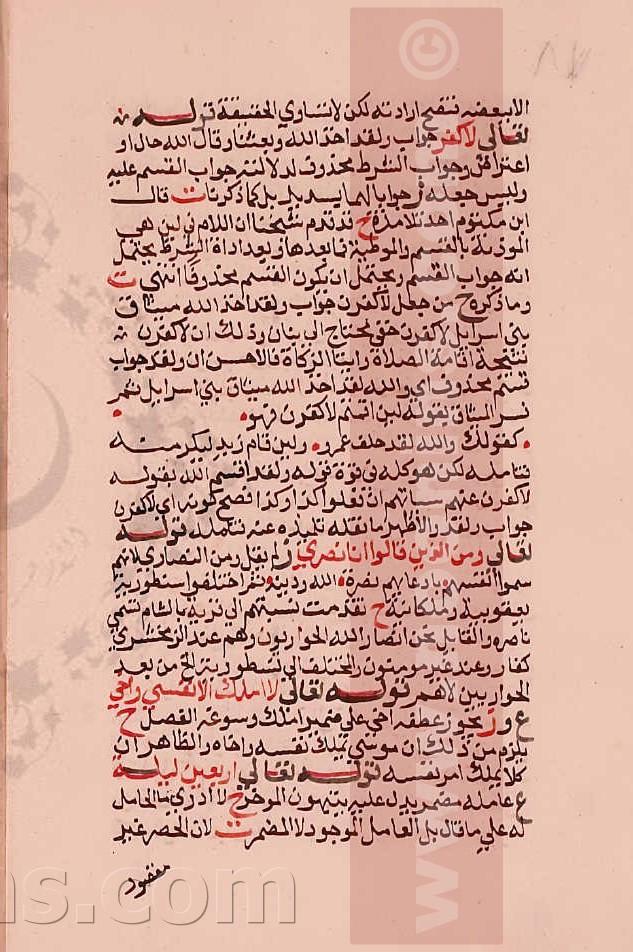 الابعضه تتضح ارادته لكن لا تساوي الحقيقة قوله
تعالى لاكفرن جواب ولقد اخذ الله وبعثنا وقال الله حال او
اعتراض وجواب الشرط محذوف لدلالته جواب القسم عليه
وليس جعله جوابا لهما يسد بل كما ذكرنا ت قال
ابن مكتوم احد تلامذة ح قد تقدم شيخنا ان اللام في لين هي
الموذنة بالقسم والموطية فما بعدها وبعد اداة الشرط يحتمل
انه جواب القسم ويحتمل ان يكون القسم محذوفا انتهى ت
وما ذكره ح من جعل لاكفرن جواب ولقد اخذ الله ميثاق
بني اسرايل لاكفرن حتى يحتاج الى بيان وذلك ان لاكفرن
نتيجة اقامة الصلاة وايتا الزكاة فالاحسن ان ولقد جواب
قسم محذوف اي والله لقد اخذ الله ميثاق بني اسرايل ثم
الميثاق بقوله لين اقمتم لاكفرن فهو
كقولك والله لقد حلف عمرو ولين قام زيد ليكرمنه
فتامله لكن هو كله في قوة قوله ولقد اقسم الله بقوله
لاكفرن عنهم سياتهم ان فعلوا كذا وكذا فصح كونه اي لاكفرن
جواب ولقد والاظهر ما نقله تلميذه عنه فتامله قوله
تعالى ومن الذين قالوا انا نصرى ز لم يقل ومن النصارى لانهم
سموا انفسهم بادعايهم نصرة الله ودينه ثم اختلفوا نسطورية
يعقوبية وملكانية ح تقدمت نسبتهم الى قرية بالشام تسمى
ناصره والقايل نحن انصار الله الحواريون وهم عند الزمخشري
كفار وعند غيره مومنون والمختلف الى نسطورية الخ من بعد
الحواريين لاهم قوله تعالى لا املك الا نفسي واخي
ع وز يجوز عطفه اخي على ضمير املك وسوغه الفصل ح
يلزم من ذلك ان موسى يملك نفسه واخاه والظاهر ان
كلا يملك امر نفسه قوله تعالى اربعين ليلة
ع عامله مضمر يدل عليه يتيهون الموخر ح لا ادري ما الحامل
له على ما قال بل العامل الموجود لا المضمر ت لان الحصر غير
مقصود
©
www.
ns.com